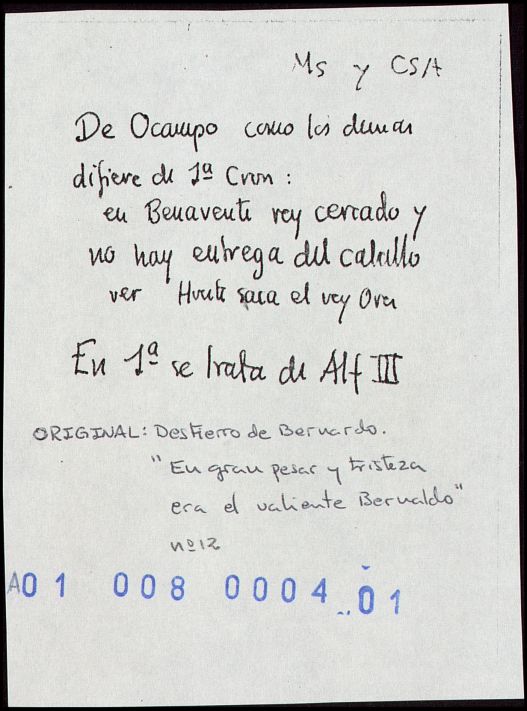 Ms y CSA
De Ocampo como los demas
difiere de 1ª Cron :
en Benavente rey cercado y
no hay entrega del castillo
ver saca el rey
En 1ª se trata de Alf III
ORIGINAL: Destierro de Bernardo.
"En gran pesar y tristeza
era el valiente Bernaldo"
nº 12
A01 008 0004 ..01